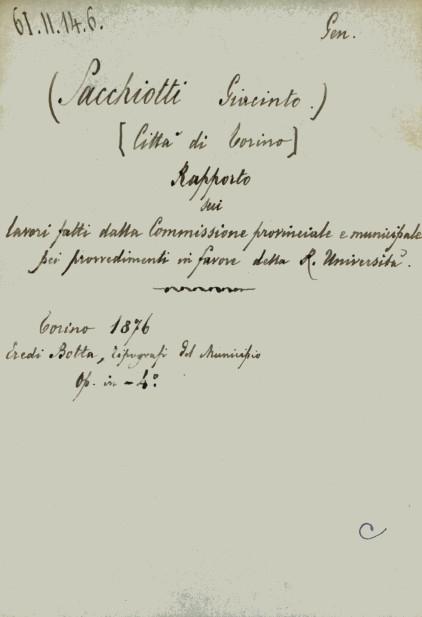 61.II.14.6. Gen.
(Pacchiotti Giacinto.)
[Città di Torino]
Rapporto
sui
lavori fatti dalla Commissione provinciale e municipale
pei provvedimenti in favore della R. Università.
Torino 1876
Eredi Botta, Tipografi del Municipio
Op. in-4.°
C